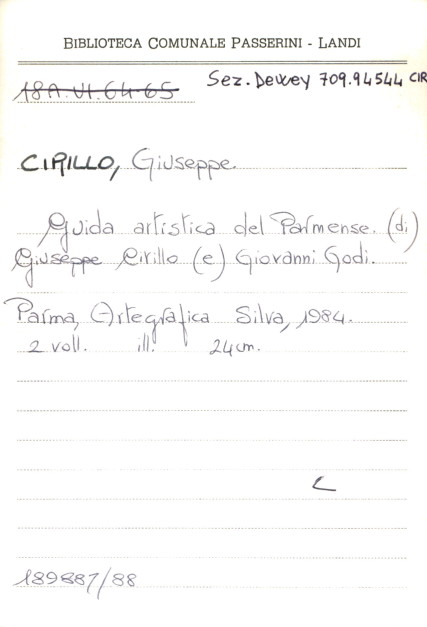 BIBLIOTECA COMUNALE PASSERINI - LANDI
18A.VI.64-65 Sez. Dewey 709.94544 CIR
CIRILLO, Giuseppe
Guida artistica del Parmense. (di)
Giuseppe Cirillo (e) Giovanni Godi.
Parma, Artegrafica Silva, 1984.
2 voll. ill. 24 cm.
L
189887/88